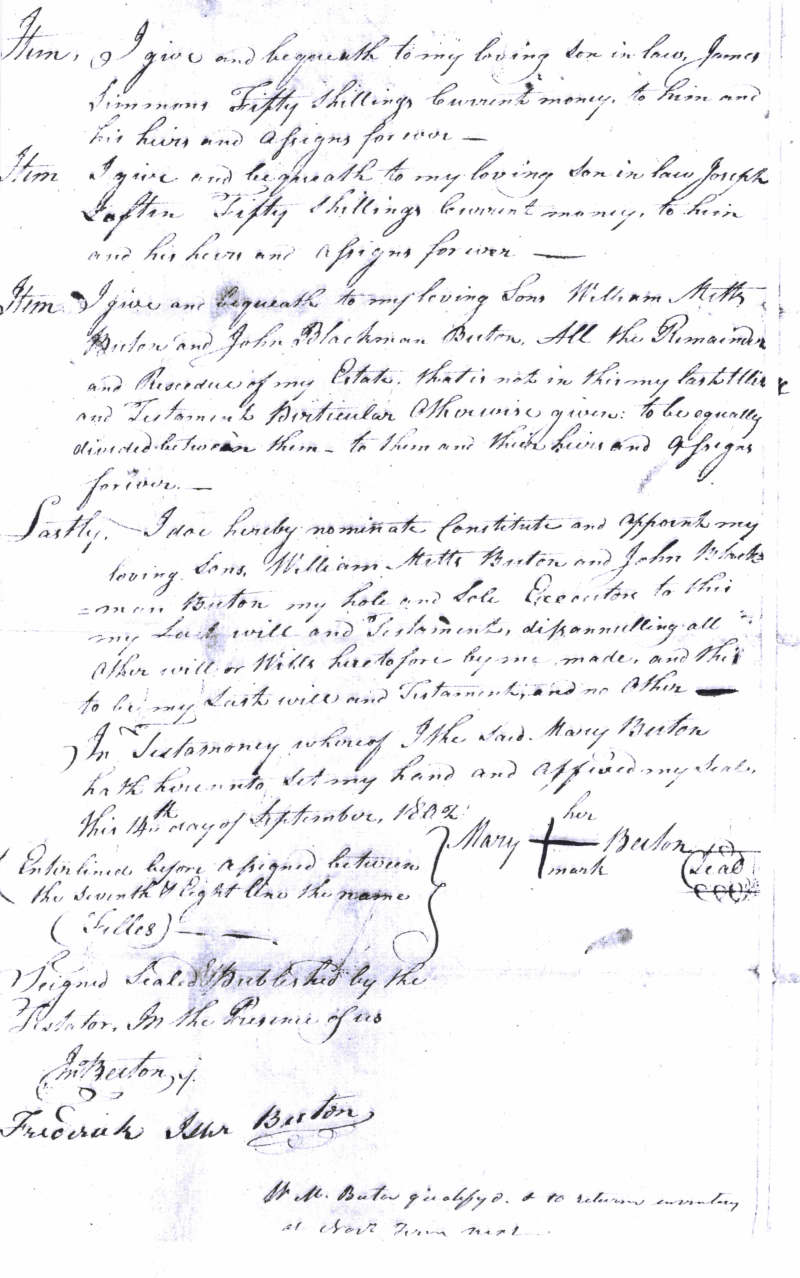 Item, I give and bequeath to my loving Son in law, James
Simmons Fifty Shillings Current money, to him and
his heirs and assigns forever —
Item I give and bequeath to my loving Son in law Joseph
Loftin Fifty Shillings Current money, to him
and his heirs and assigns forever —
Item I give and bequeath to my loving Sons William Mitts
Beeton and John Blackman Beeton, All the Remainder
and Resedue of my Estate, that is not in this my last Will
and Testament Perticular Otherwise given: to be equally
divided between them – to them and their heirs and assigns
forever. —
Lastly, I doe hereby nominate Constitute and appoint my
loving Sons, William Mitts Beeton and John Black
=man Beeton my hole and Sole Executors to this
my Last will and Testament, disannulling all
Other will or Wills heretofore by me made, and this
to be my Last will and Testament, and no Other —
In Testamoney whereof I the Said Mary Beeton
hath hereunto Set my hand and affixed my Seal,
this 14th day of September, 1802
her
Mary + Beeton
mark
Seal
Enterlined before assigned between
the seventh & Eight line the name
(Filles) — —
Seigned Sealed & Published by the
Testator, In the Presence of us
Jno Beeton, j.
Frederick Isler Beeton
W. M. Beeton qualifyd. & to return inventory
at Next Term next